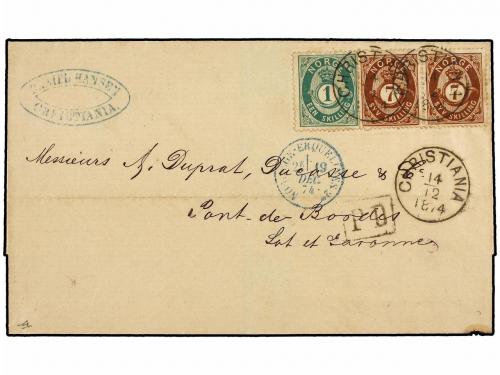 HANSEN
CHRISTIANIA.
NORGE
1
EEN SKILLING
NORGE
7
SYV SKILLING
NORGE
7
SYV SKILLING
CHRISTIANIA
CHRISTIANIA
14
12
1874
ERQUELINES
19
DEC
74
PD
Messieurs A. Duprat, Ducasse &
Pont-de-Bordes
Lot et Garonne